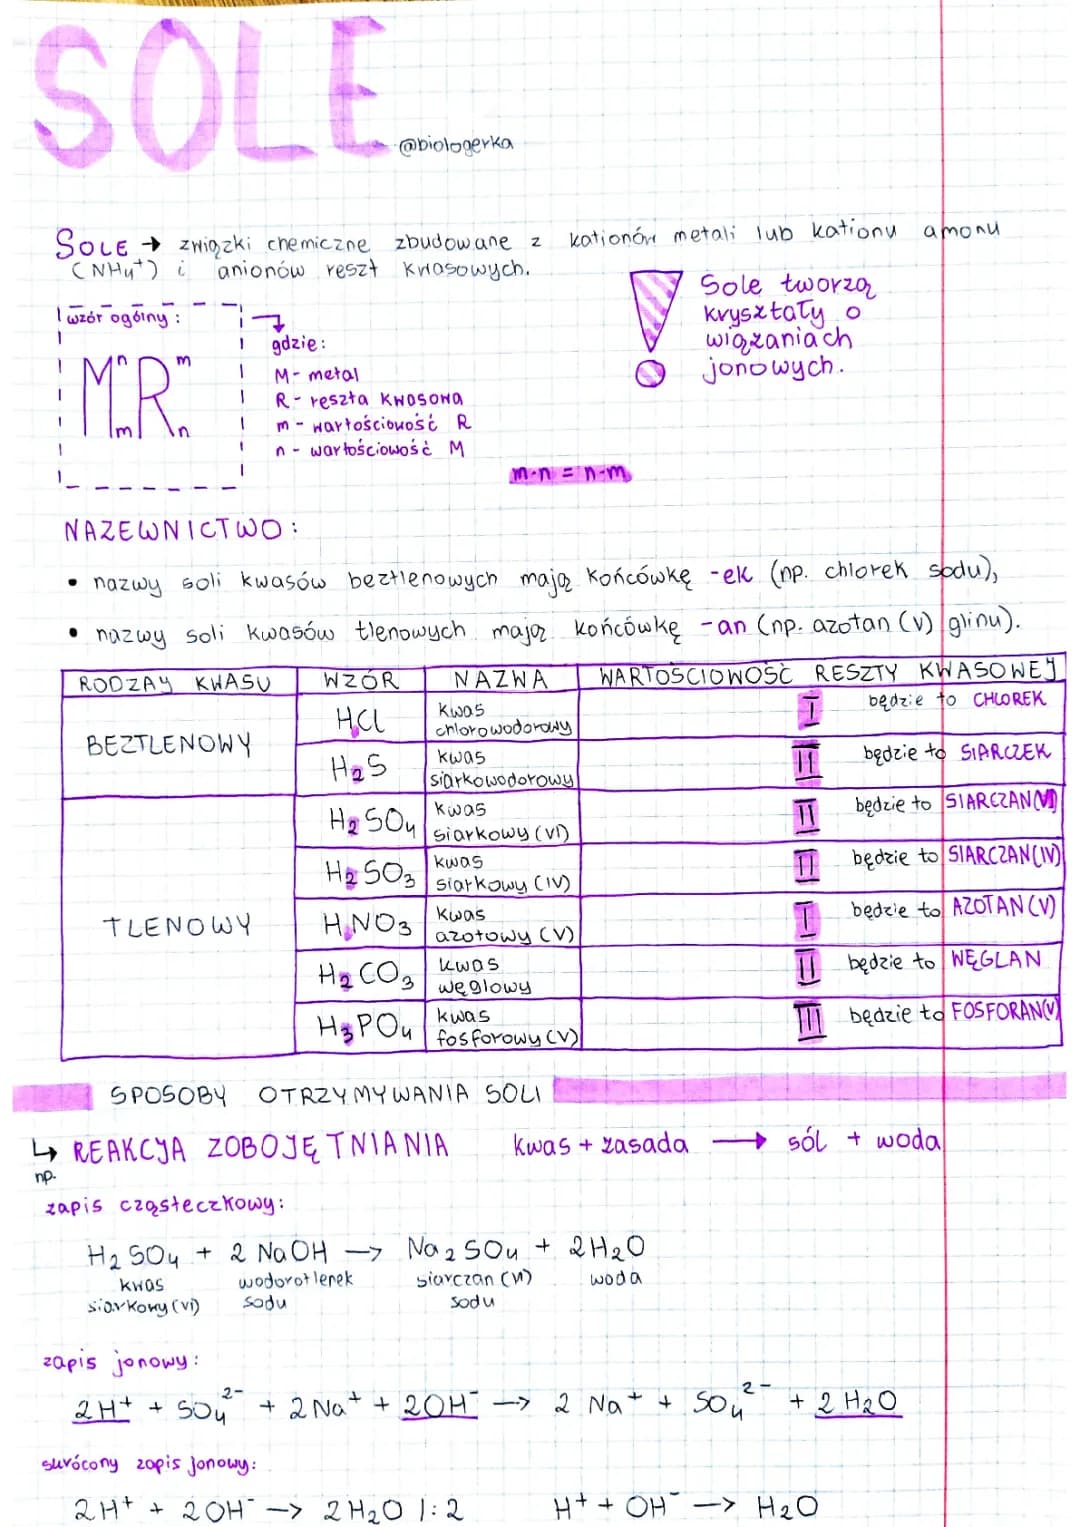 SOLE
@biologerka
SOLE → związki chemiczne zbudowane z kationów metali lub kationu amonu
(NH₄⁺) i anionów reszt kwasowych.
wzór ogólny:
MⁿₘRᵐₙ
gdzie:
M - metal
R - reszta kwasowa
m - wartościowość R
n - wartościowość M
! Sole tworzą
kryształy o
wiązaniach
jonowych.
m·n = n·m
NAZEWNICTWO:
• nazwy soli kwasów beztlenowych mają końcówkę -ek (np. chlorek sodu),
• nazwy soli kwasów tlenowych mają końcówkę -an (np. azotan (V) glinu).
RODZAJ KWASU WZÓR NAZWA WARTOŚCIOWOŚĆ RESZTY KWASOWEJ
BEZTLENOWY
HCl kwas chlorowodorowy I będzie to CHLOREK
H₂S kwas siarkowodorowy II będzie to SIARCZEK
TLENOWY
H₂SO₄ kwas siarkowy (VI) II będzie to SIARCZAN(VI)
H₂SO₃ kwas siarkowy (IV) II będzie to SIARCZAN(IV)
HNO₃ kwas azotowy (V) I będzie to AZOTAN(V)
H₂CO₃ kwas węglowy II będzie to WĘGLAN
H₃PO₄ kwas fosforowy (V) III będzie to FOSFORAN(V)
SPOSOBY OTRZYMYWANIA SOLI
↳ REAKCJA ZOBOJĘTNIANIA kwas + zasada → sól + woda
np.
zapis cząsteczkowy:
H₂SO₄ + 2 NaOH → Na₂SO₄ + 2H₂O
kwas wodorotlenek siarczan (VI) woda
siarkowy (VI) sodu sodu
zapis jonowy:
2H⁺ + SO₄²⁻ + 2Na⁺ + 2OH⁻ → 2 Na⁺ + SO₄²⁻ + 2 H₂O
skrócony zapis jonowy:
2H⁺ + 2OH⁻ → 2H₂O |:2 H⁺ + OH⁻ → H₂O